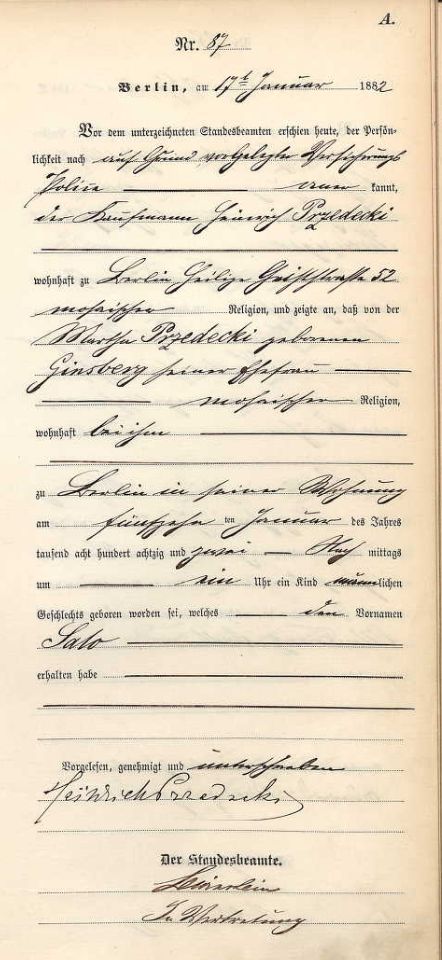 A.
Nr. 87
Berlin, am 17ten Januar 1882
Vor dem unterzeichneten Standesbeamten erschien heute, der Persön-
lichkeit nach auf Grund vorgelegter Versicherungs
Police anerkannt,
der Kaufmann Heinrich Przedecki
wohnhaft zu Berlin Heilige Geiststrasse 52
mosaischer Religion, und zeigte an, daß von der
Martha Przedecki geborenen
Ginsberg seiner Ehefrau
mosaischer Religion,
wohnhaft bei ihm
zu Berlin in seiner Wohnung
am fünfzehn ten Januar des Jahres
tausend acht hundert achtzig und zwei Nach mittags
um ein Uhr ein Kind männlichen
Geschlechts geboren worden sei, welches den Vornamen
Salo
erhalten habe
Vorgelesen, genehmigt und unterschrieben
Heinrich Przedecki
Der Standesbeamte.
In Vertretung